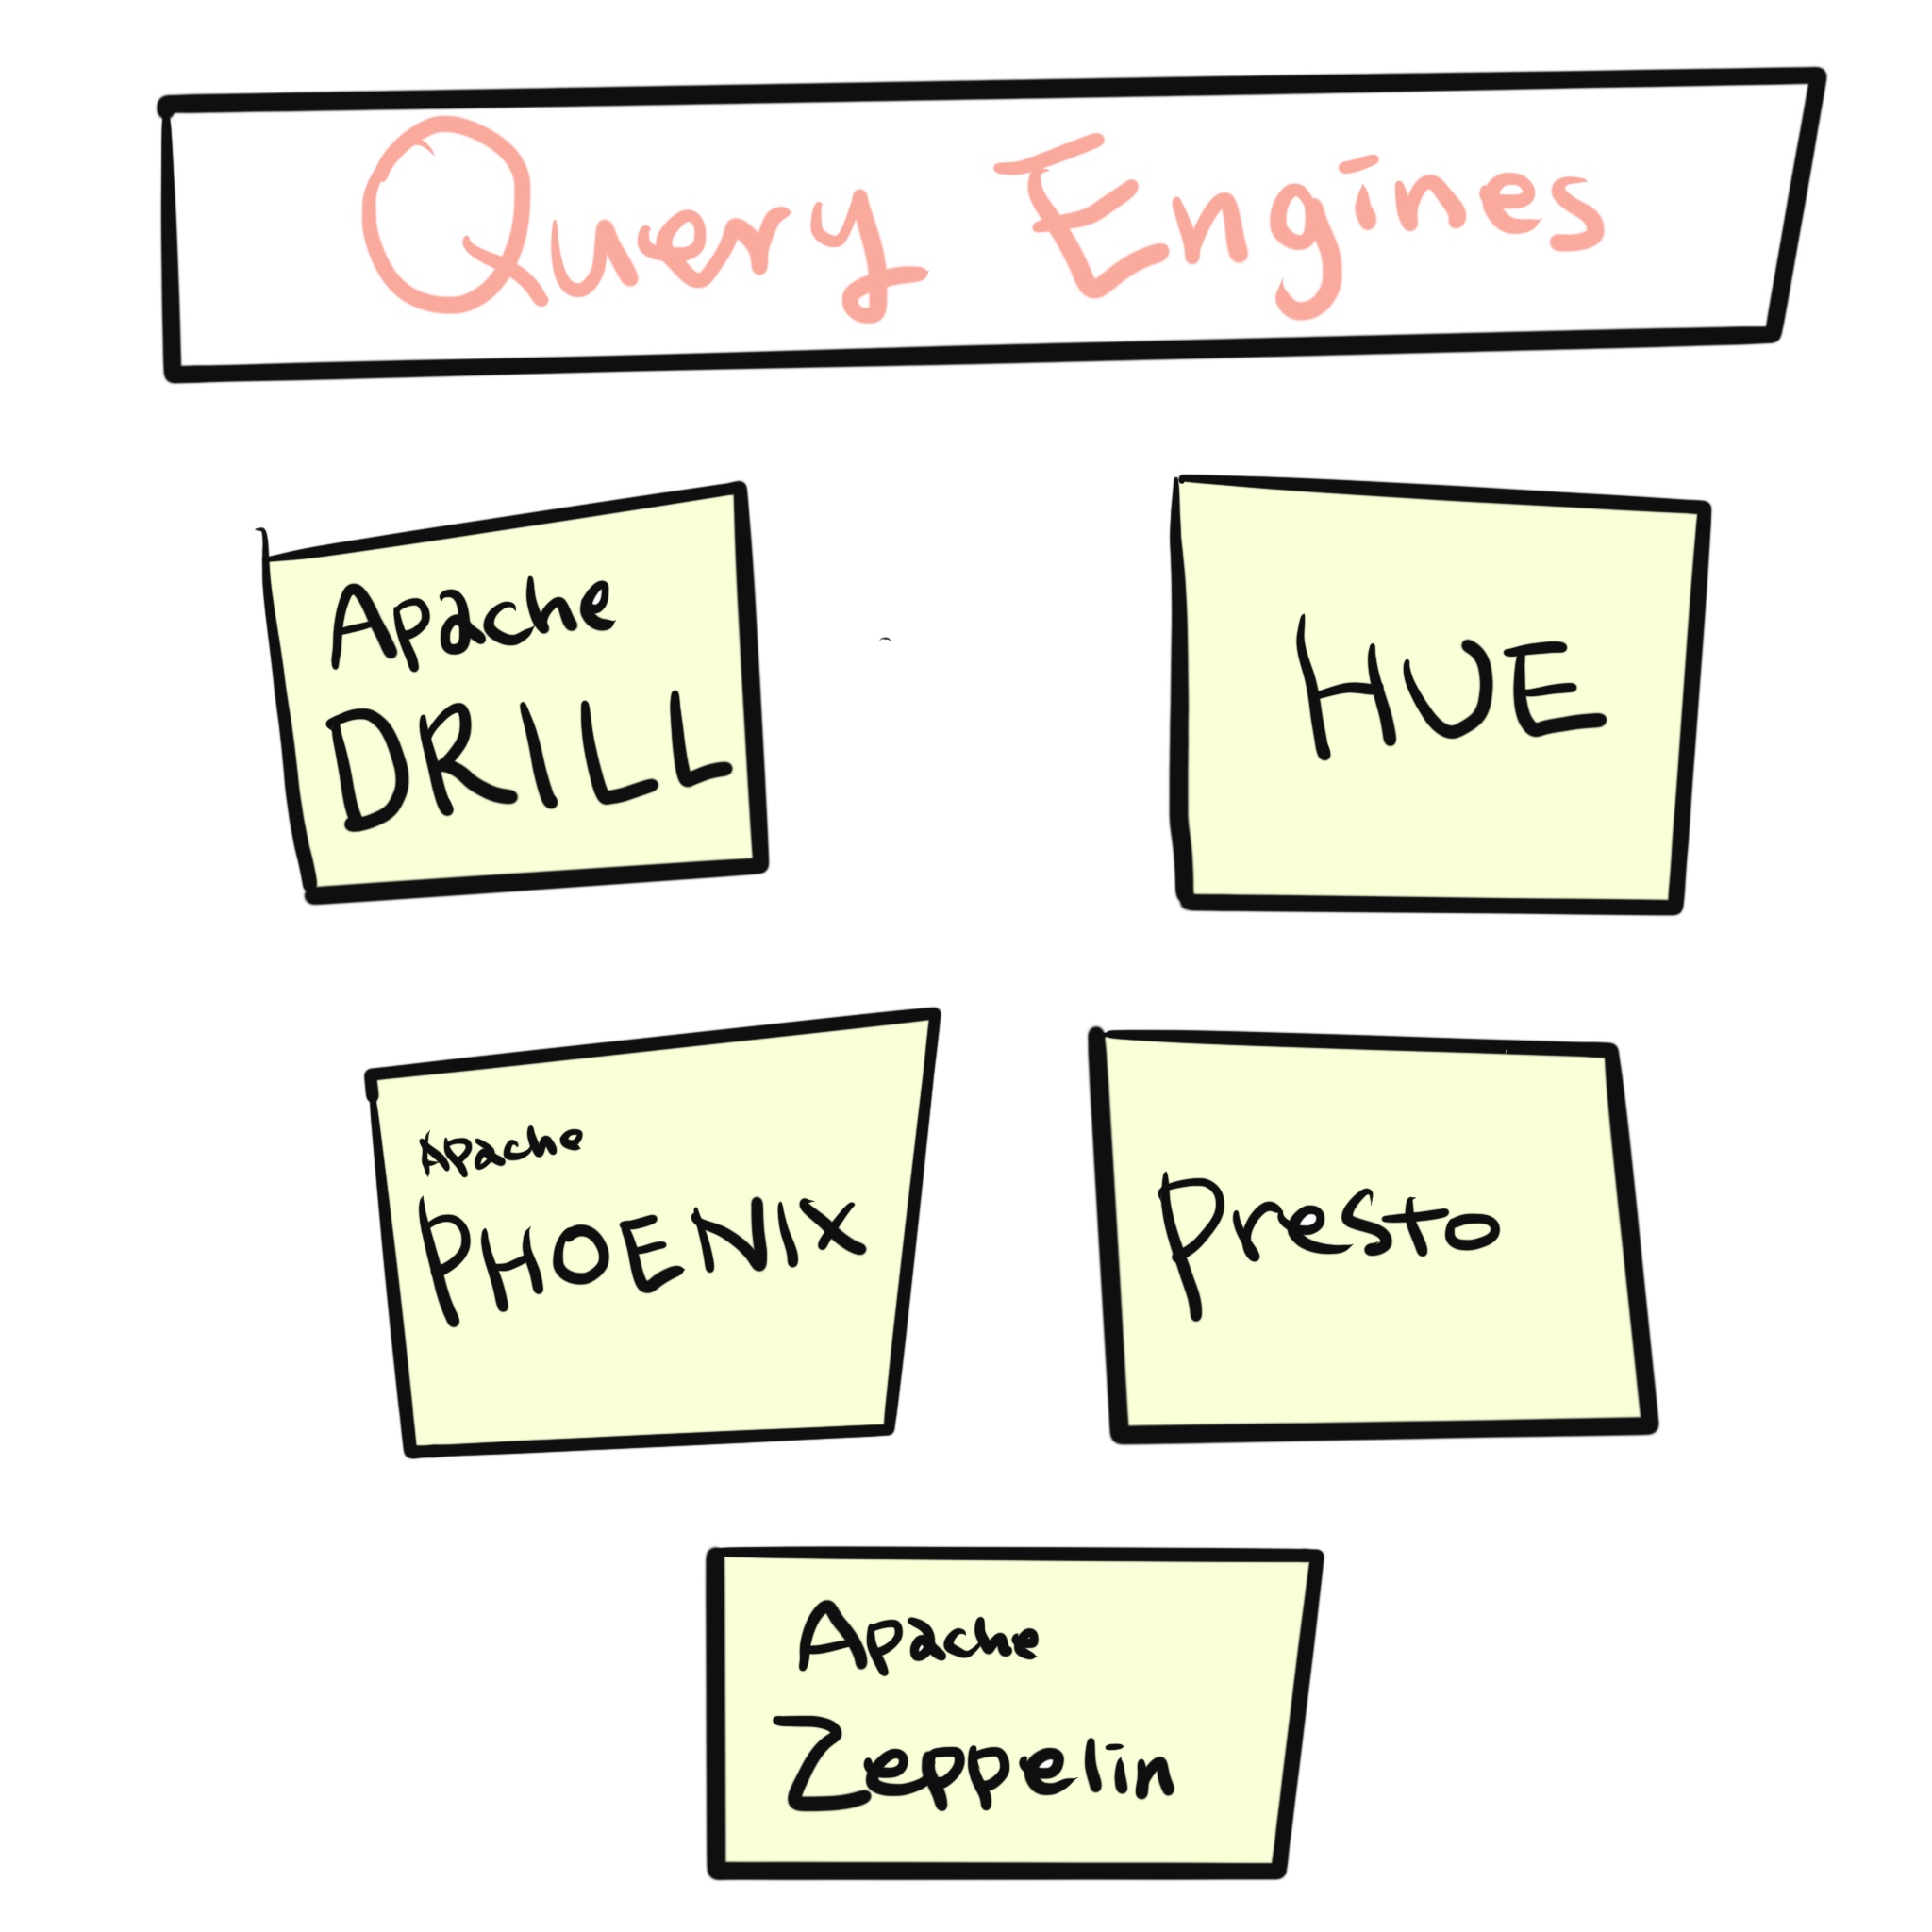 Query Engines
Apache
DRILL
HUE
Apache
PHOENIX
Presto
Apache
Zeppelin